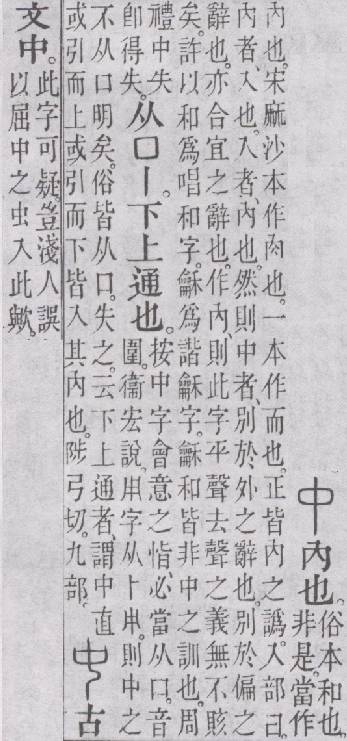 中內也。俗本和也。非是。當作
內也。宋麻沙本作肉也。一本作而也。正皆內之譌。入部曰。
內者、入也。入者、內也。然則中者、別於外之辭也。別於偏之
辭也。亦合宜之辭也。作內、則此字平聲去聲之義無不賅
矣。許以和爲唱和字。龢爲諧龢字。龢和皆非中之訓也。周
禮中失卽得失。从口丨。下上通也。按中字會意之恉、必當从口。音圍。衞宏說。用字从卜中。則中之
不从口明矣。俗皆从口。失之。云下上通者、謂中直或引而上或引而下皆入其內也。陟弓切。九部。𠁧古
文中。此字可疑。豈淺人誤以屈中之虫入此歟。